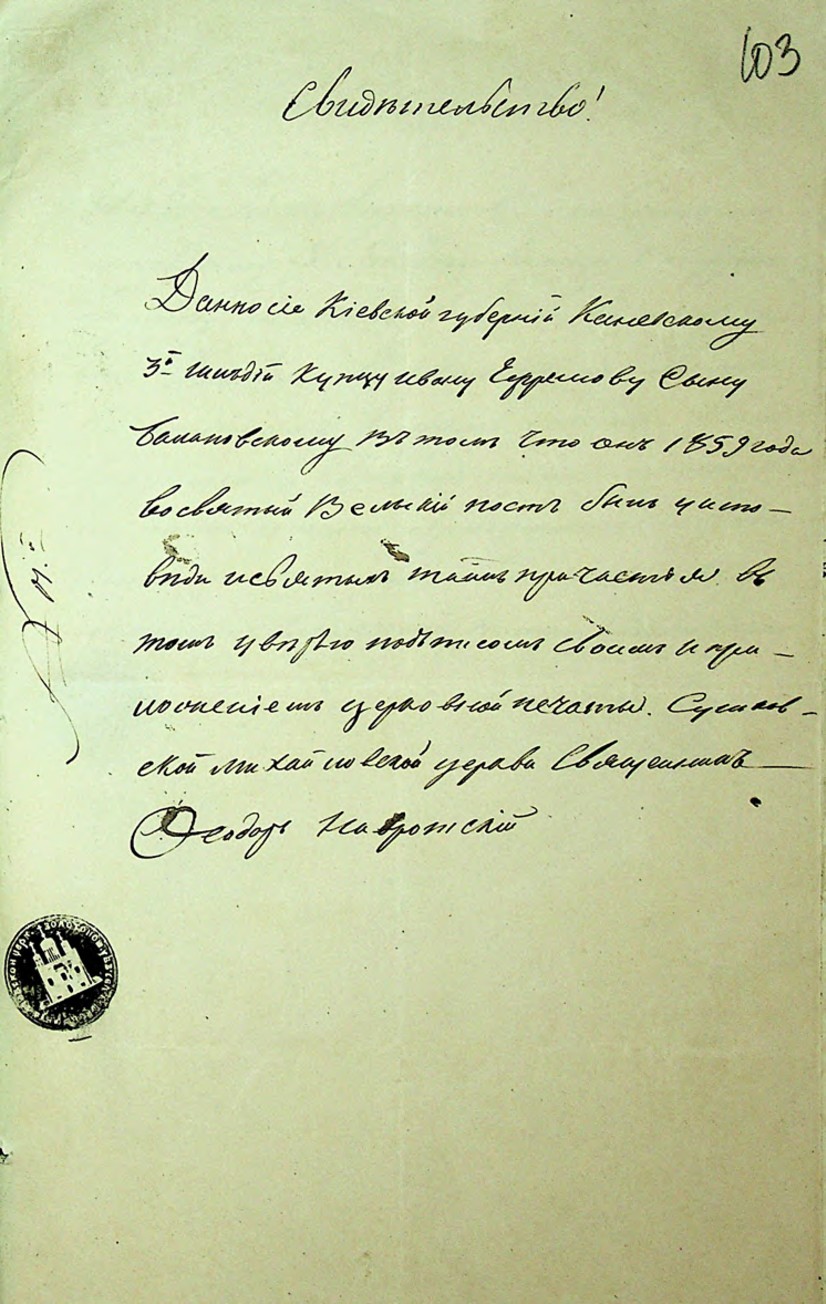 103
Свидѣтельство!
Данно сіе Кіевской губерній Каневскому
3й гильдій Купцу ивану Ефремову Сыну
въ томъ что онъ 1859 года
во святый Великій постъ былъ у испо-
веди и святыхъ таинъ причастія в
томъ увѣряю подписомъ своимъ и при-
ложеніемъ церковной печаты.
ской михайловской церкви Священникъ
Феодоръ Навротскій